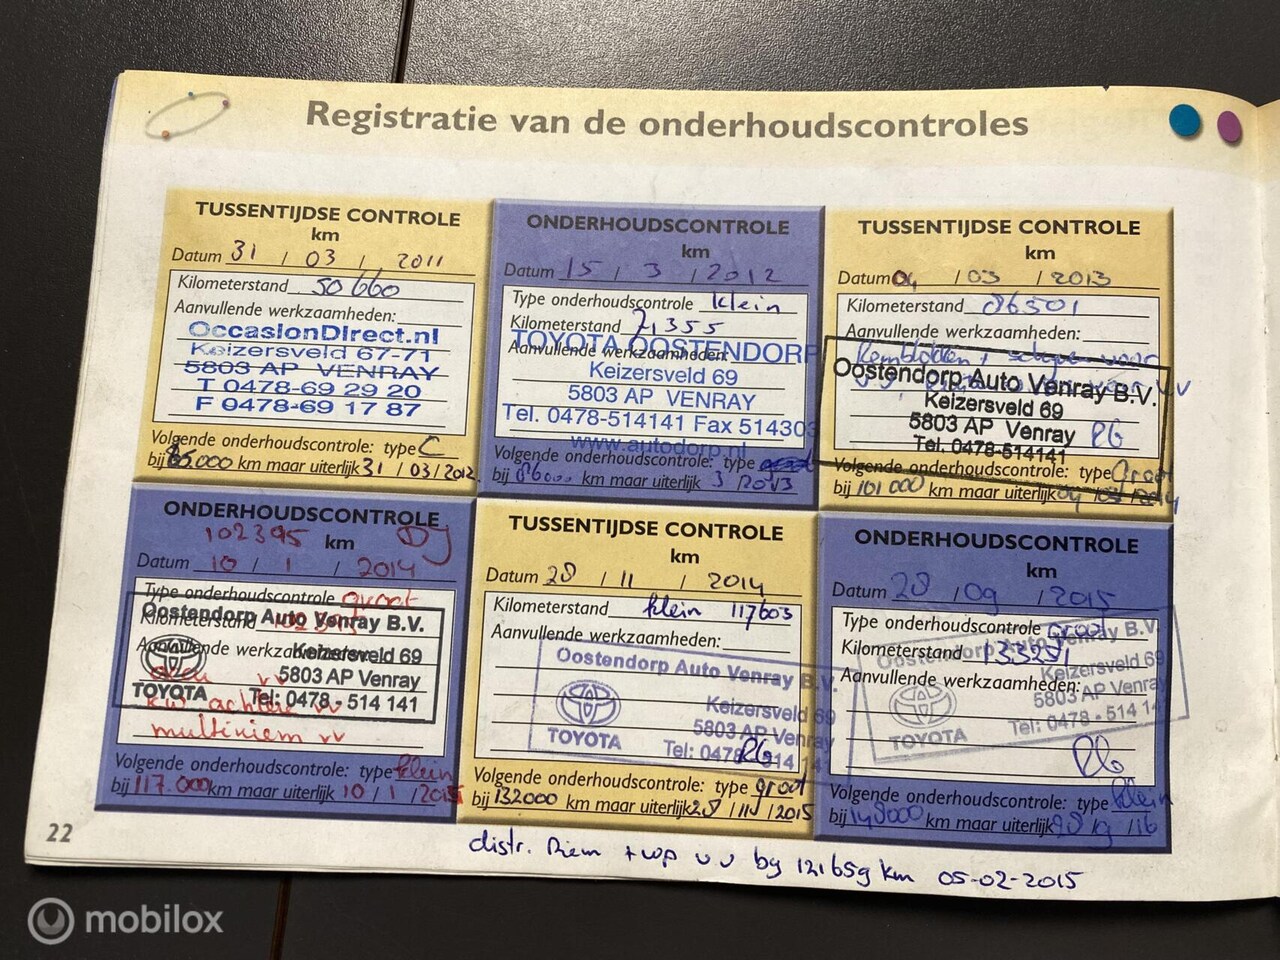 Registratie van de onderhoudscontroles
TUSSENTIJDSE CONTROLE
km
Datum 31 / 03 / 2011
Kilometerstand 50660
Aanvullende werkzaamheden:
OccasionDirect.nl
Keizersveld 67-71
5803 AP VENRAY
T 0478-69 29 20
F 0478-69 17 87
Volgende onderhoudscontrole: type C
bij 65.000 km maar uiterlijk 31 / 03 / 2012
ONDERHOUDSCONTROLE
km
Datum 15 / 3 / 2012
Type onderhoudscontrole klein
Kilometerstand 71355
Aanvullende werkzaamheden:
TOYOTA OOSTENDORP
Keizersveld 69
5803 AP VENRAY
Tel. 0478-514141 Fax 514303
www.autodorp.nl
Volgende onderhoudscontrole: type
bij 86000 km maar uiterlijk 3 / 2013
TUSSENTIJDSE CONTROLE
km
Datum 04 / 03 / 2013
Kilometerstand 86501
Aanvullende werkzaamheden:
Remblokken + schijven voor
Oostendorp Auto Venray B.V.
Keizersveld 69
5803 AP Venray
Tel. 0478-514141
Volgende onderhoudscontrole: type Groot
bij 101000 km maar uiterlijk 04 / 03 / 2014
ONDERHOUDSCONTROLE
102395 km
Datum 10 / 1 / 2014
Type onderhoudscontrole groot
Kilometerstand 102395
Aanvullende werkzaamheden
Oostendorp Auto Venray B.V.
Keizersveld 69
5803 AP Venray
TOYOTA Tel: 0478 - 514 141
multiriem vv
Volgende onderhoudscontrole: type klein
bij 117.000 km maar uiterlijk 10 / 1 / 2015
TUSSENTIJDSE CONTROLE
km
Datum 28 / 11 / 2014
Kilometerstand klein 117603
Aanvullende werkzaamheden:
Oostendorp Auto Venray B.V.
Keizersveld 69
5803 AP Venray
TOYOTA Tel: 0478 - 514 14
Volgende onderhoudscontrole: type groot
bij 132000 km maar uiterlijk 28 / 11 / 2015
ONDERHOUDSCONTROLE
km
Datum 28 / 09 / 2015
Type onderhoudscontrole Groot
Kilometerstand 133251
Aanvullende werkzaamheden:
Oostendorp Auto Venray B.V.
Keizersveld 69
5803 AP Venray
TOYOTA Tel: 0478 - 514 14
Volgende onderhoudscontrole: type klein
bij 148000 km maar uiterlijk 28 / 9 / 16
22
distr. Riem + wp vv by 121659 km 05-02-2015
mobilox